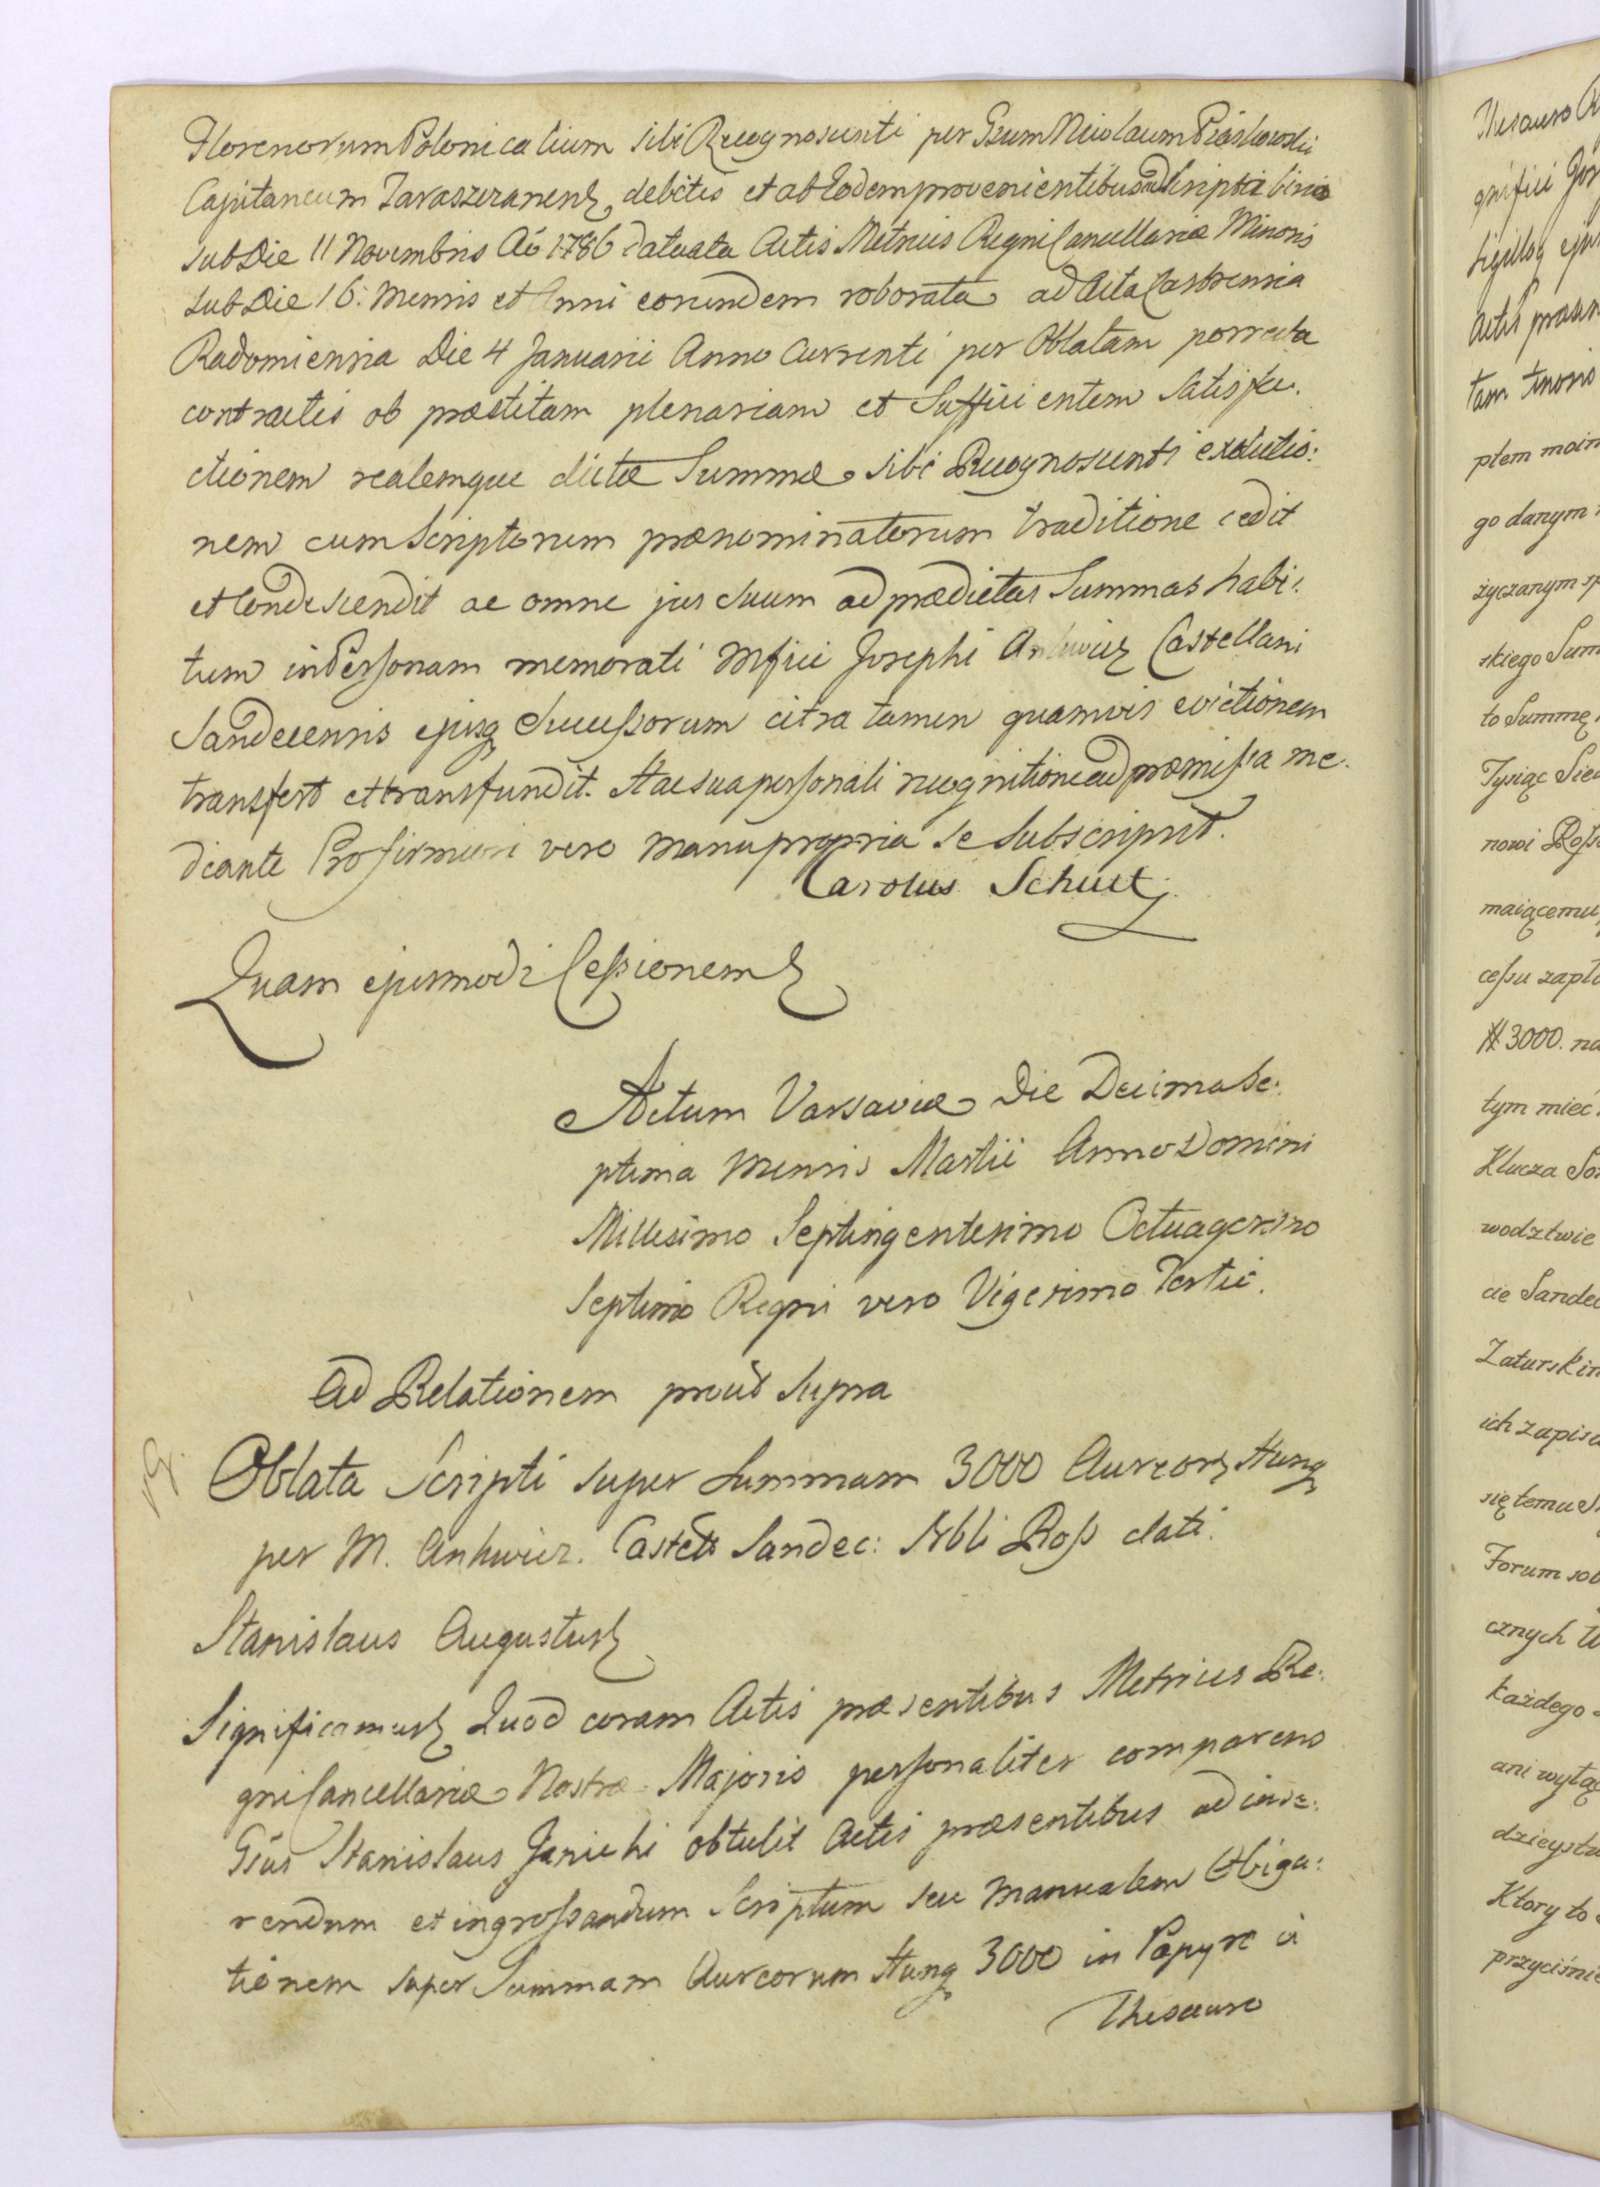 Florenorum Polonicalium sibi Recognoscenti per Gsum Nicolaum Piaskowski
Capitaneum Taraszczanens, debitis et ab Eodem provenientibus Scripta bina
sub Die 11 Novembris Ao 1786 datuata Actis Metrices Regni Cancellariæ Minoris
sub Die 16: mensis et Anni eorundem roborata ad Acta Castrensia
Radomiensia Die 4 Januarii Anno Currenti per Oblatam porrecta
contractis ob præstitam plenariam et Sufficientem Satisfa:
ctionem realemque dictæ Summæ sibi Recognoscenti exolutio:
nem cum Scriptorum prænominatorum traditione cedit
et Condescendit ac omne jus suum ad prædictas Summas habi:
tum in Personam memorati Mfici Josephi Ankwicz Castellani
Sandecensis ejusq Sucessorum citra tamen quamvis evictionem
transfert et transfundit. Hac sua personali recognitione ad præmissa me:
diante Pro firmiori vero manu propria se subscripsit.
Carolus Schultz
Quam ejusmodi Cessionem
Actum Varsaviæ Die Decima Se:
ptima Mensis Martii Anno Domini
Millesimo Septingentesimo Octuagesimo
Septimo Regni vero Vigesimo Tertii.
Ad Relationem prout supra
Oblata Scripti super Summam 3000 Aureor Hung
per M. Ankwicz. Castell Sandec: Nbli Ross dati.
Stanislaus Augustus
Significamus Quod coram Actis præsentibus Metrices Re:
gni Cancellariæ Nostræ Majoris personaliter comparens
Gsus Stanislaus Janicki obtulit Actis præsentibus ad inse:
rendum et ingrossandum Scriptum seu manualem Obliga:
tionem super Summam Aureorum Hung 3000 in Papyro à
Thesauro
Thesauro
gnifici
Sigilloq
Actis præsen
tam tenoris
ptem moim
go danym
życzanym
skiego Sum
to Summę
Tysiąc
nowi Ross
maiącemu
cessu zapła
# 3000. na
tym mieć
Klucza
wodztwie
cie Sandec
Zaturskim
ich zapisa
się temu
Forum
cznych
każdego
ani wyłą
dzieystw
Ktory to
przyciśnie